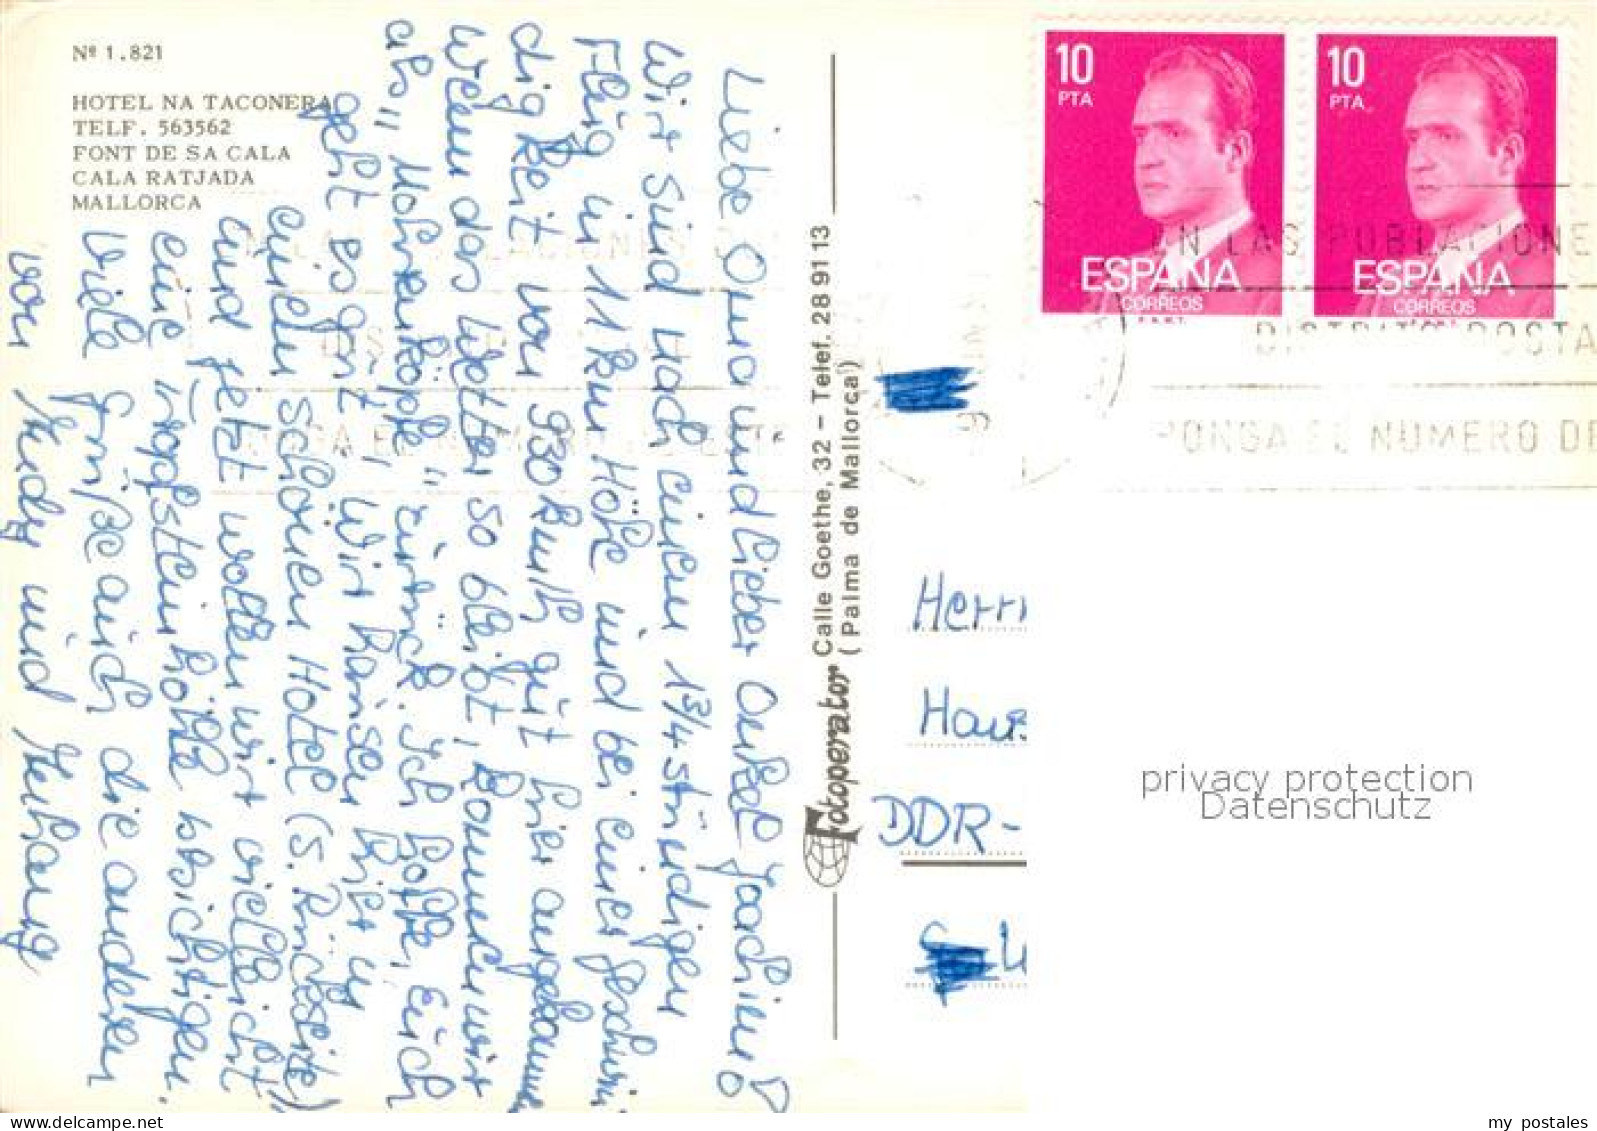 Nº 1.821
HOTEL NA TACONERA
TELF. 563562
FONT DE SA CALA
CALA RATJADA
MALLORCA
Liebe Oma und lieber Onkel Joachim!
Wir sind nach einem 1¾ stündigen
Flug in 11 km Höhe und bei einer Geschwin
digkeit von 930 km/h gut hier angekommen
Wenn das Wetter so bleibt, kommen wir
als „Mohrenköppe" zurück. Ich hoffe, Euch
geht es gut, wir hausen hier in
einem schönen Hotel (s. Rückseite)
und jetzt wollen wir vielleicht
eine Tropfsteinhöhle besichtigen.
Viele Grüße auch die anderen
von Heidy und
Fotoperator Calle Goethe, 32 - Telef. 28 91 13
(Palma de Mallorca)
10 PTA
ESPAÑA
CORREOS
F.N.M.T.
10 PTA
ESPAÑA
CORREOS
EN LAS POBLACIONE
DISTRITO POSTA
PONGA EL NUMERO DE
Herrn
Haus
DDR-
privacy protection
Datenschutz
my postales